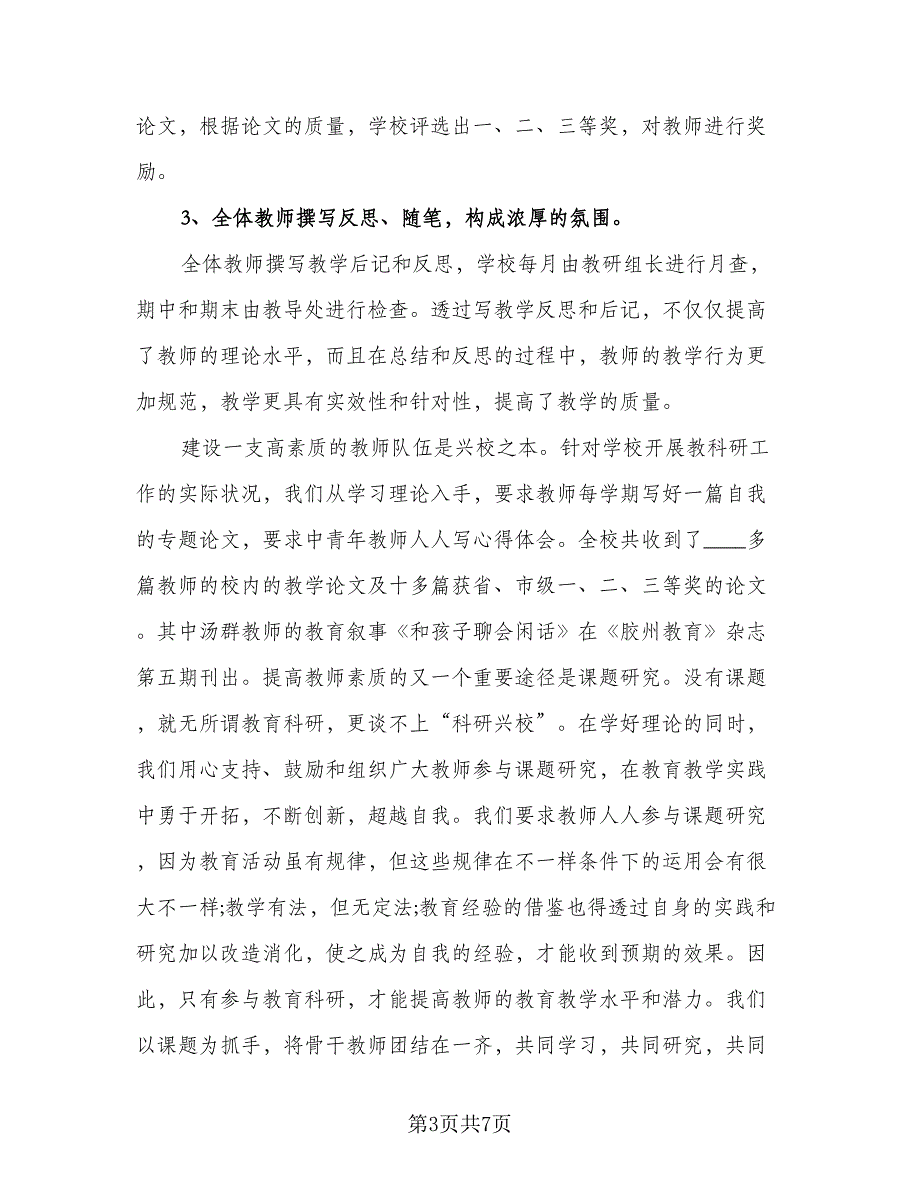 论文，根据论文的质量，学校评选出一、二、三等奖，对教师进行奖
励。
3、全体教师撰写反思、随笔，构成浓厚的氛围。
全体教师撰写教学后记和反思，学校每月由教研组长进行月查，
期中和期末由教导处进行检查。透过写教学反思和后记，不仅仅提高
了教师的理论水平，而且在总结和反思的过程中，教师的教学行为更
加规范，教学更具有实效性和针对性，提高了教学的质量。
建设一支高素质的教师队伍是兴校之本。针对学校开展教科研工
作的实际状况，我们从学习理论入手，要求教师每学期写好一篇自我
的专题论文，要求中青年教师人人写心得体会。全校共收到了____多
篇教师的校内的教学论文及十多篇获省、市级一、二、三等奖的论文
。其中汤群教师的教育叙事《和孩子聊会闲话》在《胶州教育》杂志
第五期刊出。提高教师素质的又一个重要途径是课题研究。没有课题
，就无所谓教育科研，更谈不上“科研兴校”。在学好理论的同时，
我们用心支持、鼓励和组织广大教师参与课题研究，在教育教学实践
中勇于开拓，不断创新，超越自我。我们要求教师人人参与课题研究
，因为教育活动虽有规律，但这些规律在不一样条件下的运用会有很
大不一样;教学有法，但无定法;教育经验的借鉴也得透过自身的实践和
研究加以改造消化，使之成为自我的经验，才能收到预期的效果。因
此，只有参与教育科研，才能提高教师的教育教学水平和潜力。我们
以课题为抓手，将骨干教师团结在一齐，共同学习，共同研究，共同
第3页共7页